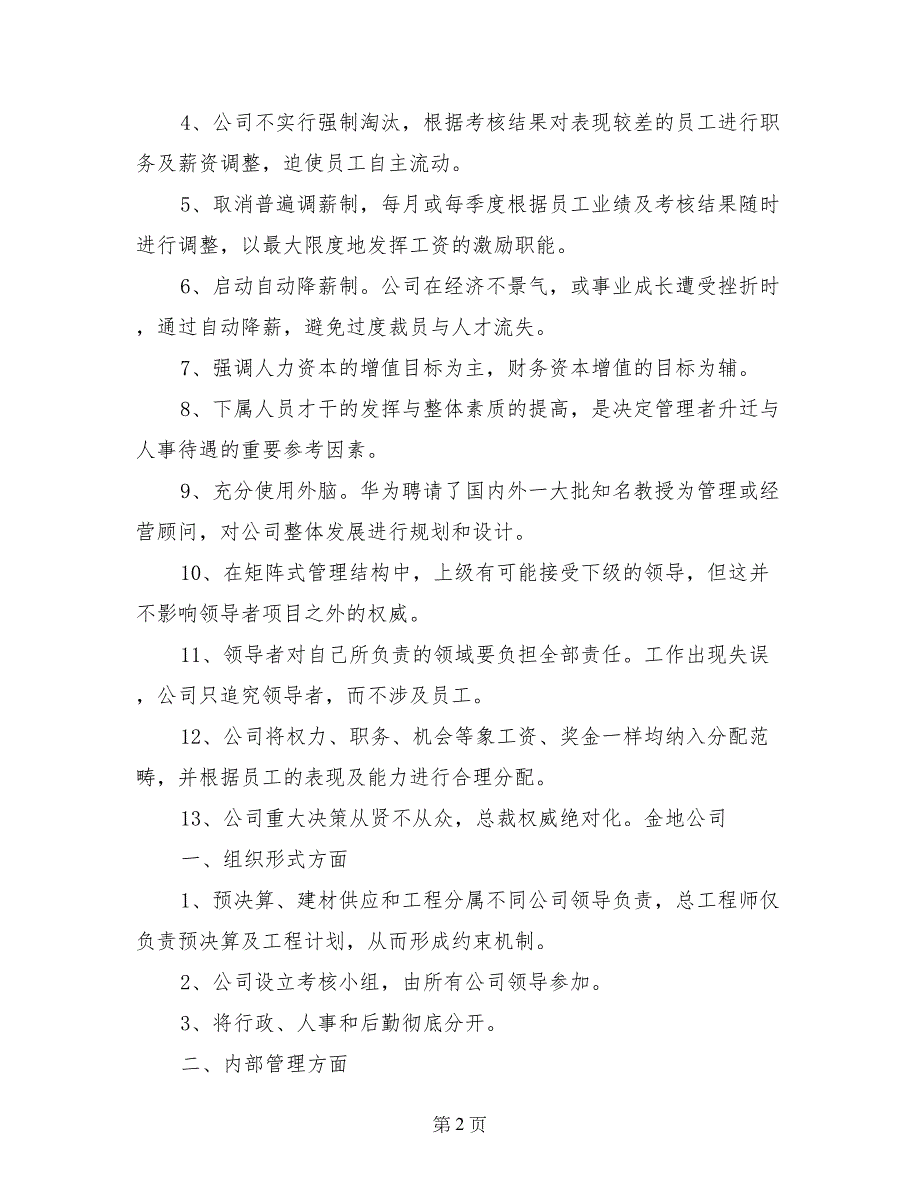 4、公司不实行强制淘汰，根据考核结果对表现较差的员工进行职
务及薪资调整，迫使员工自主流动。
5、取消普遍调薪制，每月或每季度根据员工业绩及考核结果随时
进行调整，以最大限度地发挥工资的激励职能。
6、启动自动降薪制。公司在经济不景气，或事业成长遭受挫折时
，通过自动降薪，避免过度裁员与人才流失。
7、强调人力资本的增值目标为主，财务资本增值的目标为辅。
8、下属人员才干的发挥与整体素质的提高，是决定管理者升迁与
人事待遇的重要参考因素。
9、充分使用外脑。华为聘请了国内外一大批知名教授为管理或经
营顾问，对公司整体发展进行规划和设计。
10、在矩阵式管理结构中，上级有可能接受下级的领导，但这并
不影响领导者项目之外的权威。
11、领导者对自己所负责的领域要负担全部责任。工作出现失误
，公司只追究领导者，而不涉及员工。
12、公司将权力、职务、机会等象工资、奖金一样均纳入分配范
畴，并根据员工的表现及能力进行合理分配。
13、公司重大决策从贤不从众，总裁权威绝对化。金地公司
一、组织形式方面
1、预决算、建材供应和工程分属不同公司领导负责，总工程师仅
负责预决算及工程计划，从而形成约束机制。
2、公司设立考核小组，由所有公司领导参加。
3、将行政、人事和后勤彻底分开。
二、内部管理方面
第 2 页